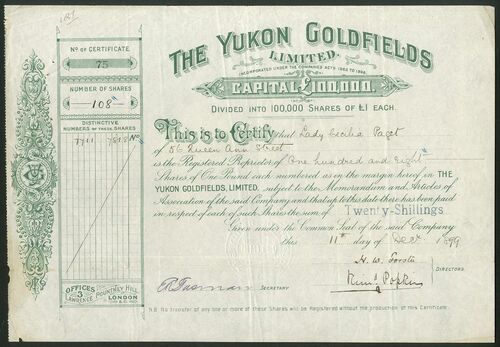 No. OF CERTIFICATE
75
NUMBER OF SHARES
108
DISTINCTIVE
NUMBERS OF THESE SHARES
OFFICES
3
LAWRENCE POUNTNEY HILL
LONDON
E.C.
THE YUKON GOLDFIELDS
LIMITED.
INCORPORATED UNDER THE COMPANIES ACTS 1862 TO 1898.
CAPITAL £100,000.
DIVIDED INTO 100,000 SHARES OF £1 EACH.
This is to Certify that Lady Cecilia Paget
of 56 Queen Ann Street
is the Registered Proprietor of One hundred and eight
Shares of One Pound each numbered as in the margin hereof in THE
YUKON GOLDFIELDS, LIMITED, subject to the Memorandum and Articles of
Association of the said Company and that up to this date there has been paid
in respect of each of such Shares the sum of Twenty-Shillings
Given under the Common Seal of the said Company
this 11th day of Decr 1899
H. W. Forster
DIRECTORS.
SECRETARY
N.B. No transfer of any one or more of these Shares will be Registered without the production of this Certificate.